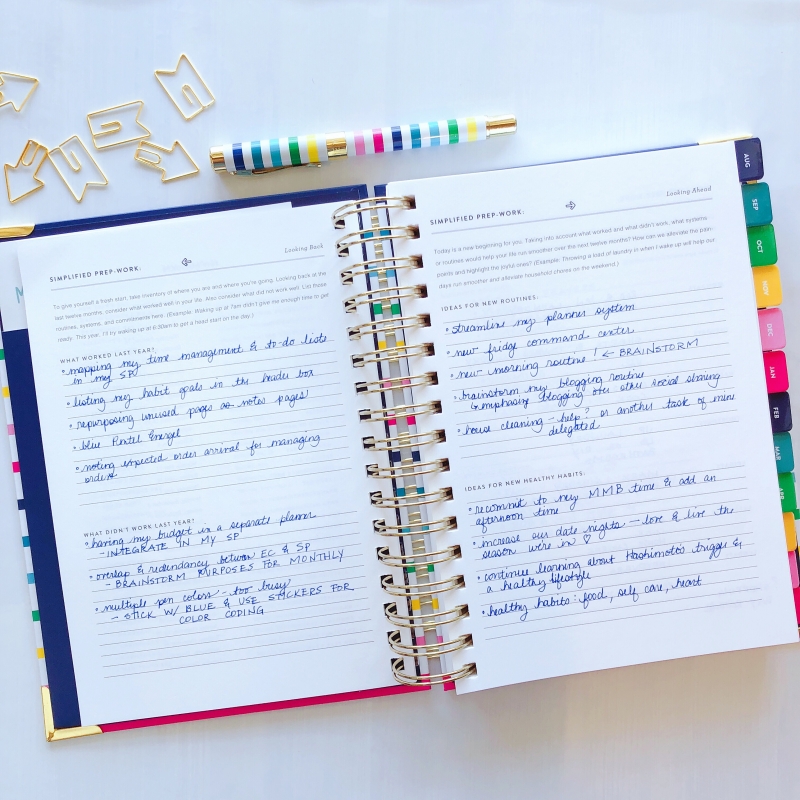 Looking Back
SIMPLIFIED PREP-WORK:
To give yourself a fresh start, take inventory of where you are and where you're going. Looking back at the
last twelve months, consider what worked well in your life. Also consider what did not work well. List those
routines, systems, and commitments here. (Example: Waking up at 7am didn't give me enough time to get
ready. This year, I'll try waking up at 6:30am to get a head start on the day.)
WHAT WORKED LAST YEAR?
• mapping my time management & to-do lists
in my SP!
• listing my habit goals in the header box
• repurposing unused pages as notes pages!
• blue Pentel Energel
• noting expected order arrival for managing
orders
WHAT DIDN'T WORK LAST YEAR?
• having my budget in a separate planner
- INTEGRATE IN MY SP
• overlap & redundancy between EC & SP
- BRAINSTORM PURPOSES FOR MONTHLY
• multiple pen colors - too busy
- STICK W/ BLUE & USE STICKERS FOR
COLOR CODING
Looking Ahead
SIMPLIFIED PREP-WORK:
Today is a new beginning for you. Taking into account what worked and what didn't work, what systems
or routines would help your life run smoother over the next twelve months? How can we alleviate the pain-
points and highlight the joyful ones? (Example: Throwing a load of laundry in when I wake up will help our
days run smoother and alleviate household chores on the weekend.)
IDEAS FOR NEW ROUTINES:
• streamline my planner system
• new fridge command center
• new morning routine! ← BRAINSTORM
• brainstorm my blogging routine
↳ emphasize blogging over other social sharing
• house cleaning - help? or another task of mine
delegated
IDEAS FOR NEW HEALTHY HABITS:
• recommit to my MMB time & add an
afternoon time
• increase our date nights — love & live the
season we're in ♡
• continue learning about Hashimoto's triggers &
a healthy lifestyle
• healthy habits: food, self care, heart
AUG
SEP
OCT
NOV
DEC
JAN
FEB
MAR
APR